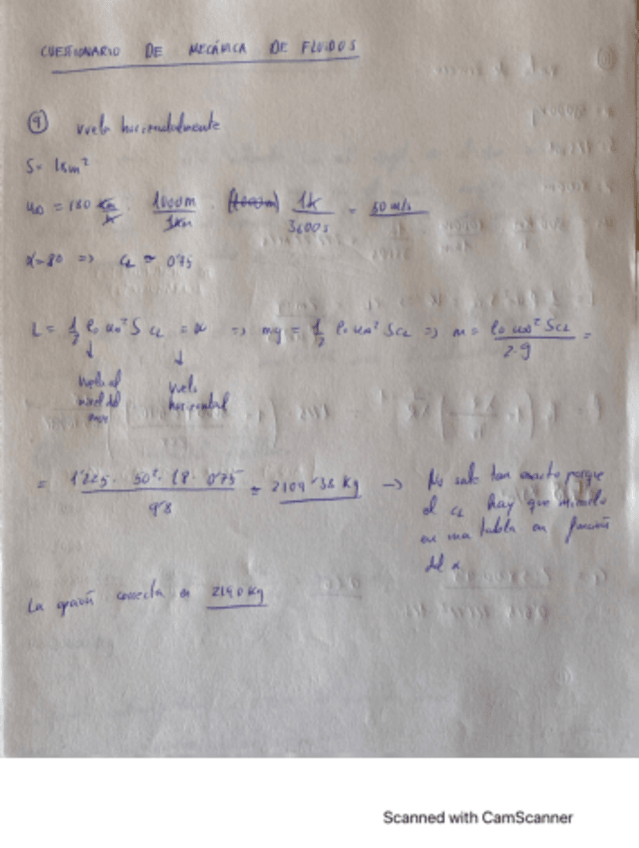 CUESTIONARIO DE MECÁNICA DE FLUIDOS
④ vuelo horizontalmente
S = 18m²
u∞ = 180 km/h · 1000m/1km · (1000m) 1h/3600s = 50 m/s
α = 8º => cL ≈ 0'75
L = 1/2 ρ₀ u∞² S cL = w => mg = 1/2 ρ₀ u∞² S cL => m = ρ₀ u∞² S cL / 2·g =
↓ ↓
vuelo al vuelo
nivel del horizontal
mar
= 1'225 · 50² · 18 · 0'75 / 9'8 = 2109'38 kg → No sale tan exacto porque
el cL hay que mirarlo
en una tabla en función
del α
La opción correcta es 2140 kg
Scanned with CamScanner